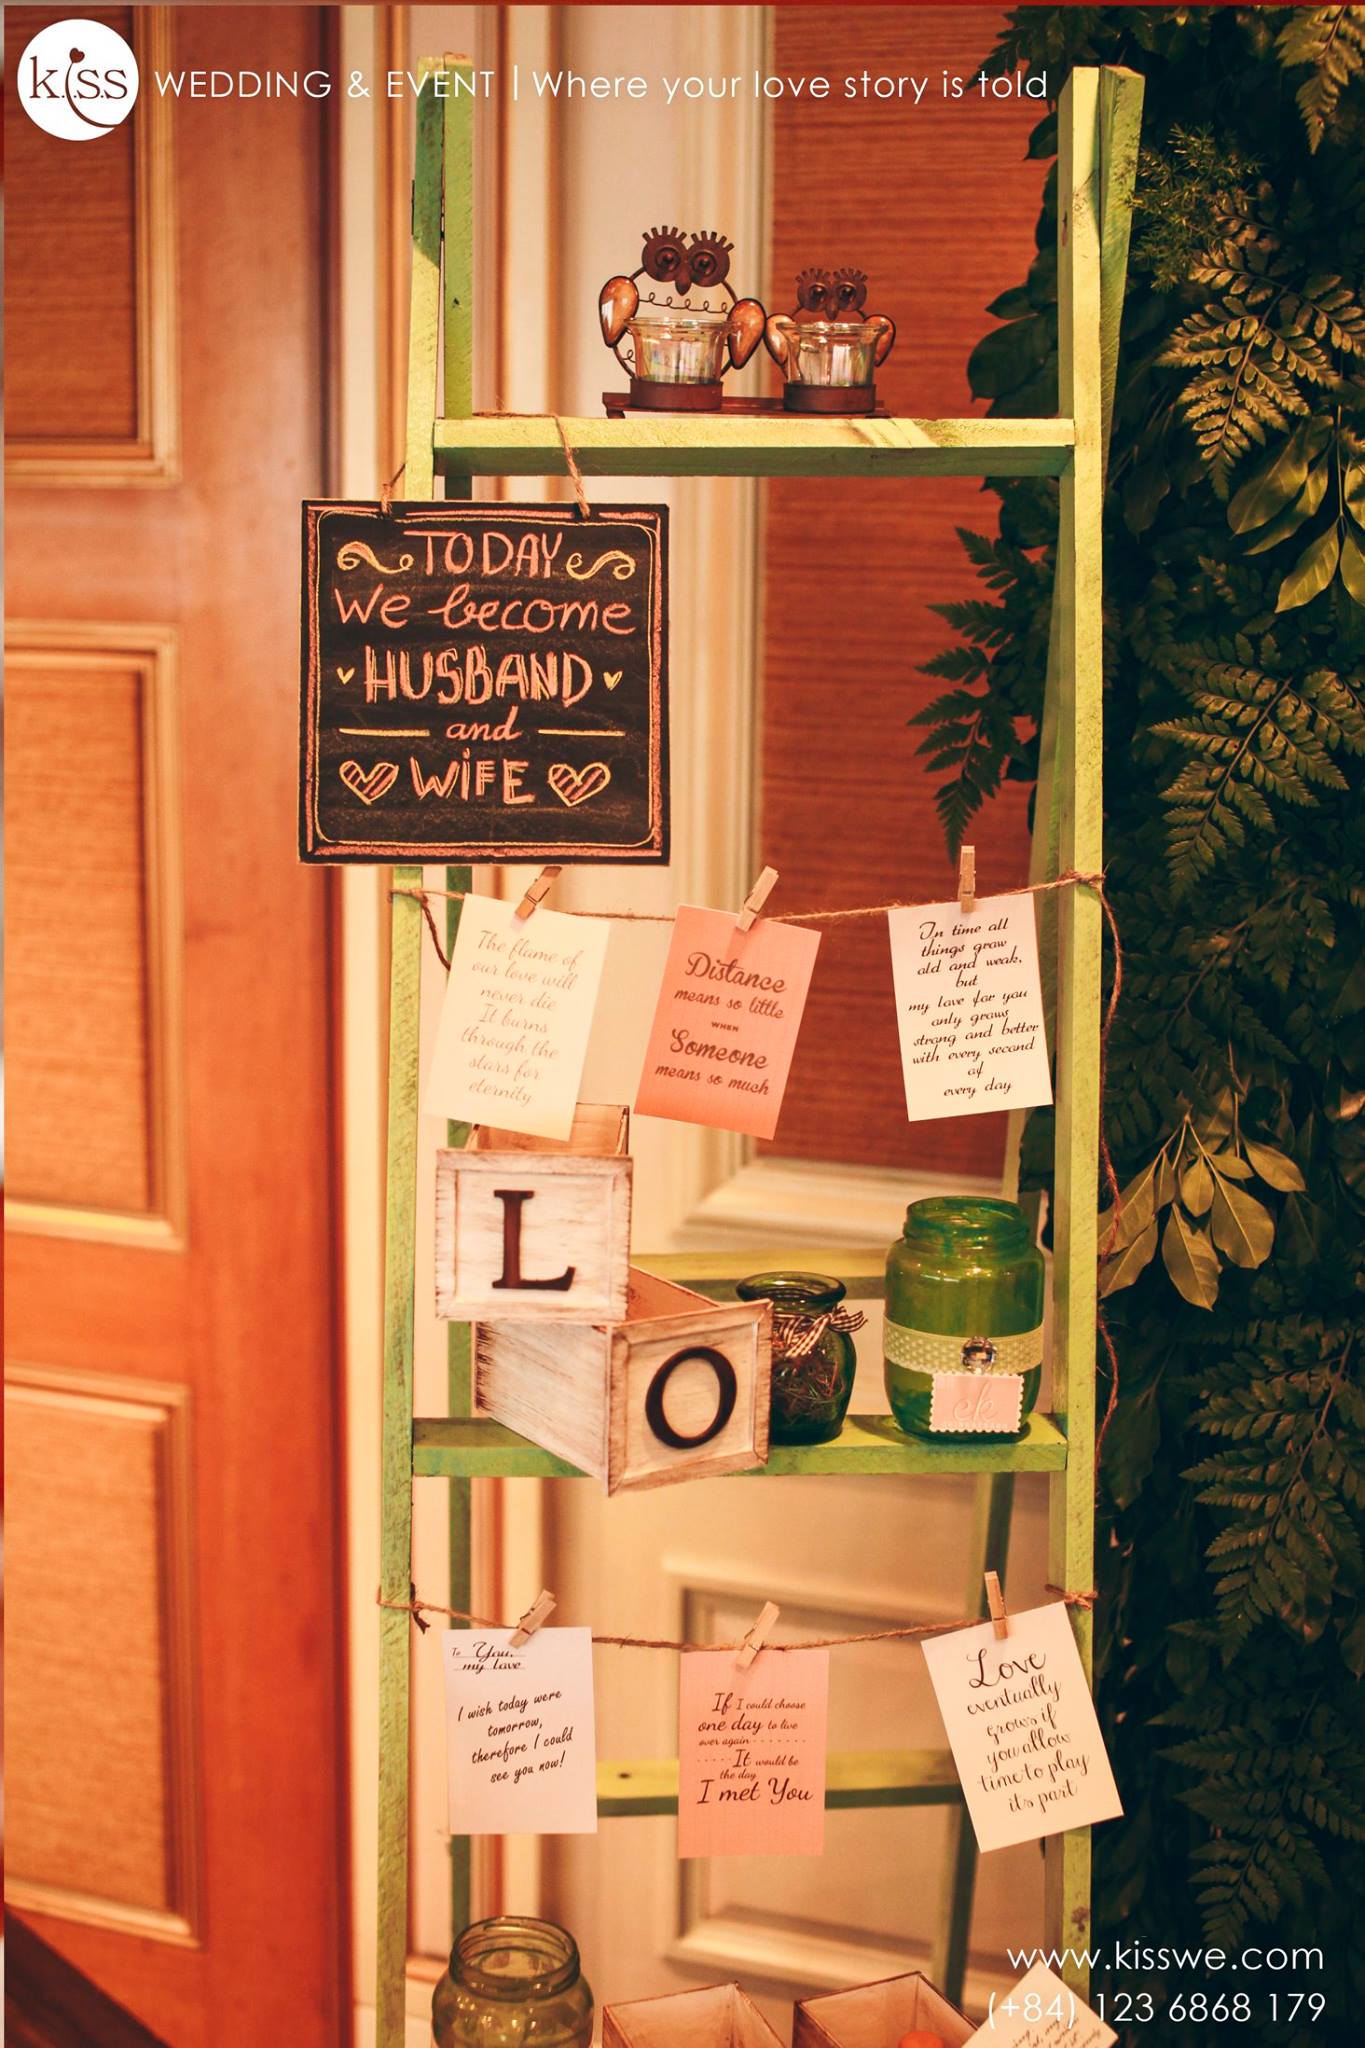 k.i.s.s
WEDDING & EVENT | Where your love story is told
TODAY
we become
HUSBAND
and
WiFE
The flame of
our love will
never die
It burns
through the
stars for
eternity
Distance
means so little
WHEN
Someone
means so much
In time all
things grow
old and weak,
but
my love for you
only grows
strong and better
with every second
of
every day
L
O
ck
To You,
my love
I wish today were
tomorrow,
therefore I could
see you now!
If I could choose
one day to live
over again ........
..... It would be
the day
I met You
Love
eventually
grows if
you allow
time to play
its part
www.kisswe.com
(+84) 123 6868 179